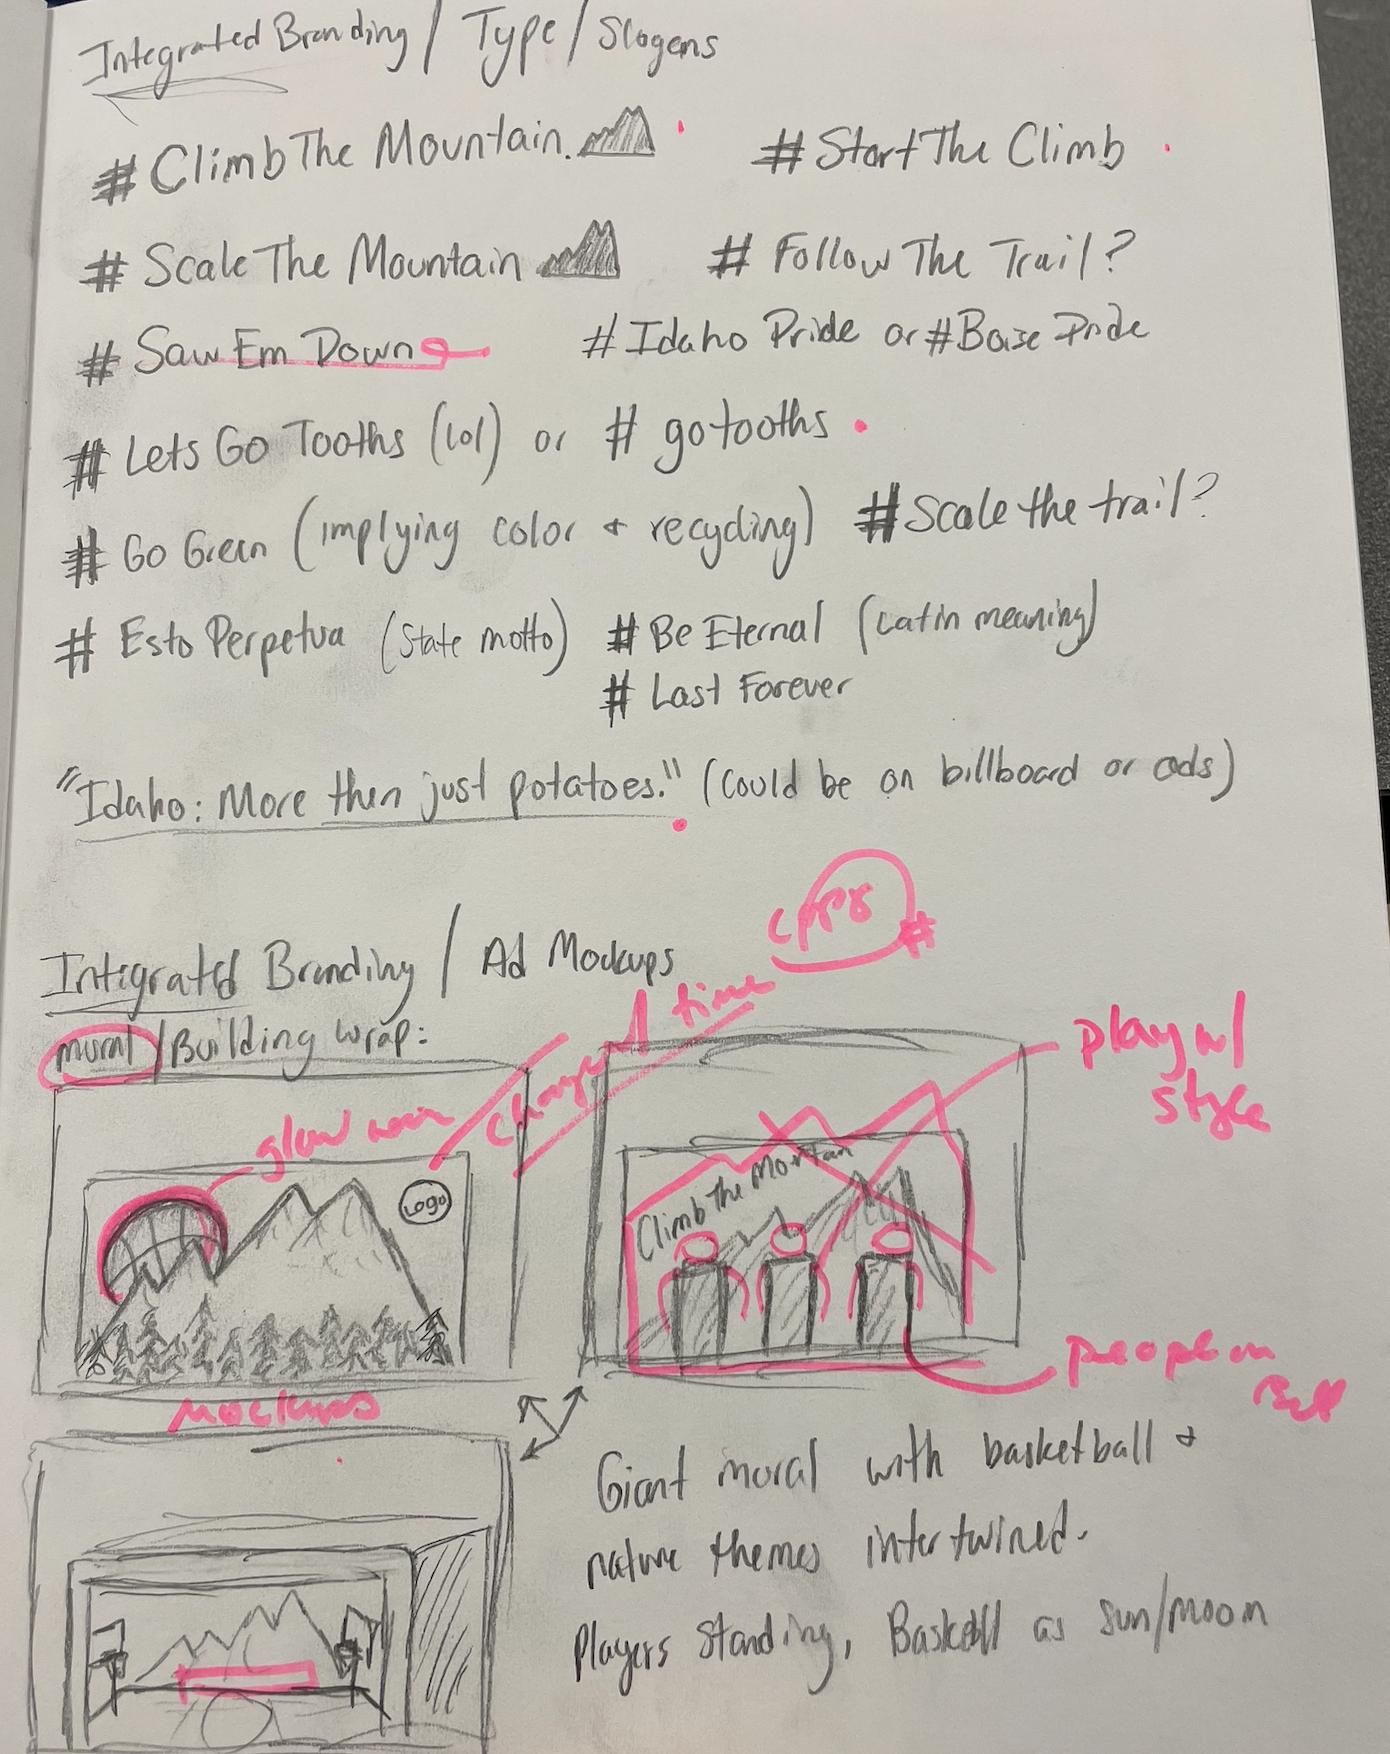 Integrated Branding / Type / Slogens
# Climb The Mountain.
# Start The Climb
# Scale The Mountain
# Follow The Trail?
# Saw Em Down
# Idaho Pride or # Boise Pride
# Lets Go Tooths (lol) or # gotooths
# Go Green (implying color + recycling)
# Scale the trail?
# Esto Perpetua (State motto)
# Be Eternal (Latin meaning)
# Last Forever
"Idaho: More then just potatoes." (Could be on billboard or ads)
#
Integrated Branding / Ad Mockups
mural / Building wrap:
change time
play w/
style
glow
Logo
Climb The Montan
people on
Mockups
Giant mural with basketball +
nature themes intertwined.
Players standing, Basketball as sun/moon